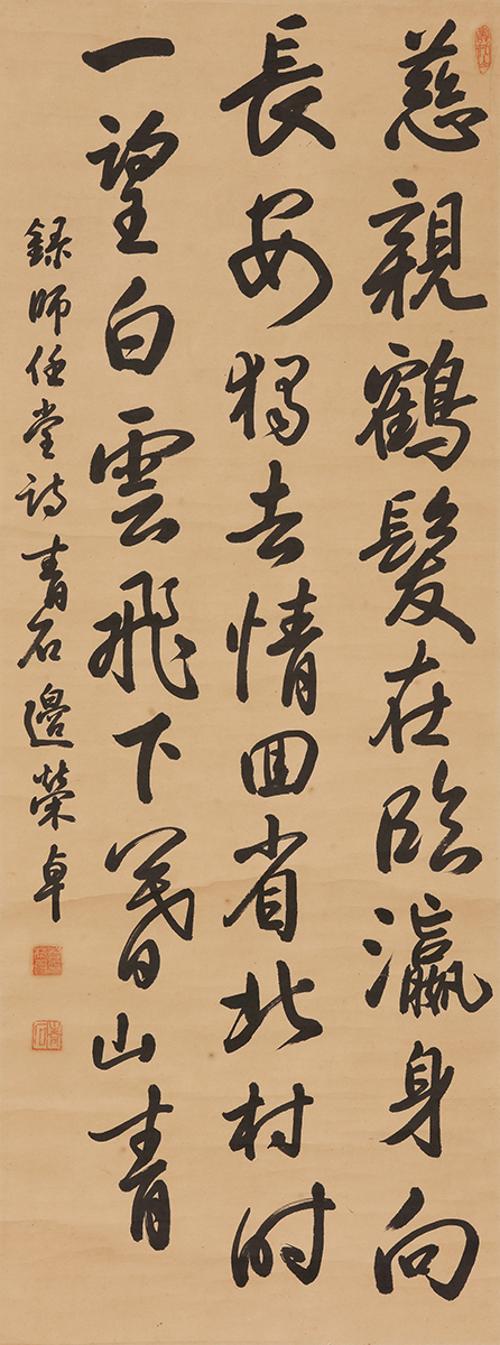 慈親鶴髮在臨瀛身向
長安獨去情回省北村時
一望白雲飛下暮山青
錄師任堂詩青石邊榮卓